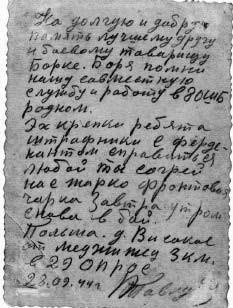 На долгую и добр.
память лучшему другу
и боевому товарищу
Борке. Боря помни
нашу совместную
службу и работу в 8 ОШБ
родном.
Эх крепки ребята
штрафники с ферде-
нантом справиться
любой ты согрей
нас жарко фронтовая
чарка завтра утром
снова в бой
Польша. д. Високое
от 3 км.
в 29 ОПРОС
23.09.44 г